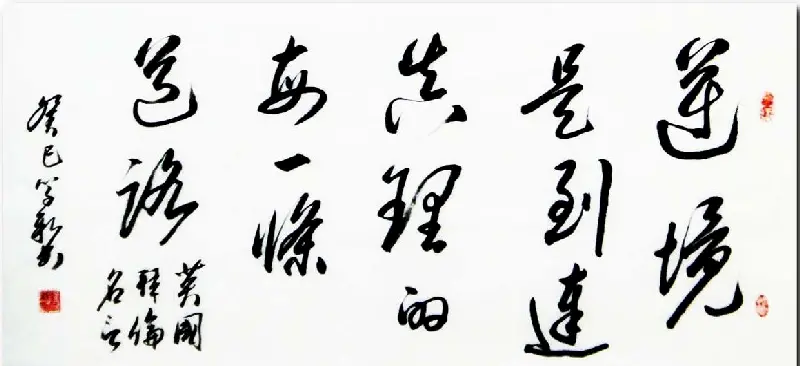 逆境
是到達
真理的
每一條
道路
英國
拜倫
名言
癸巳